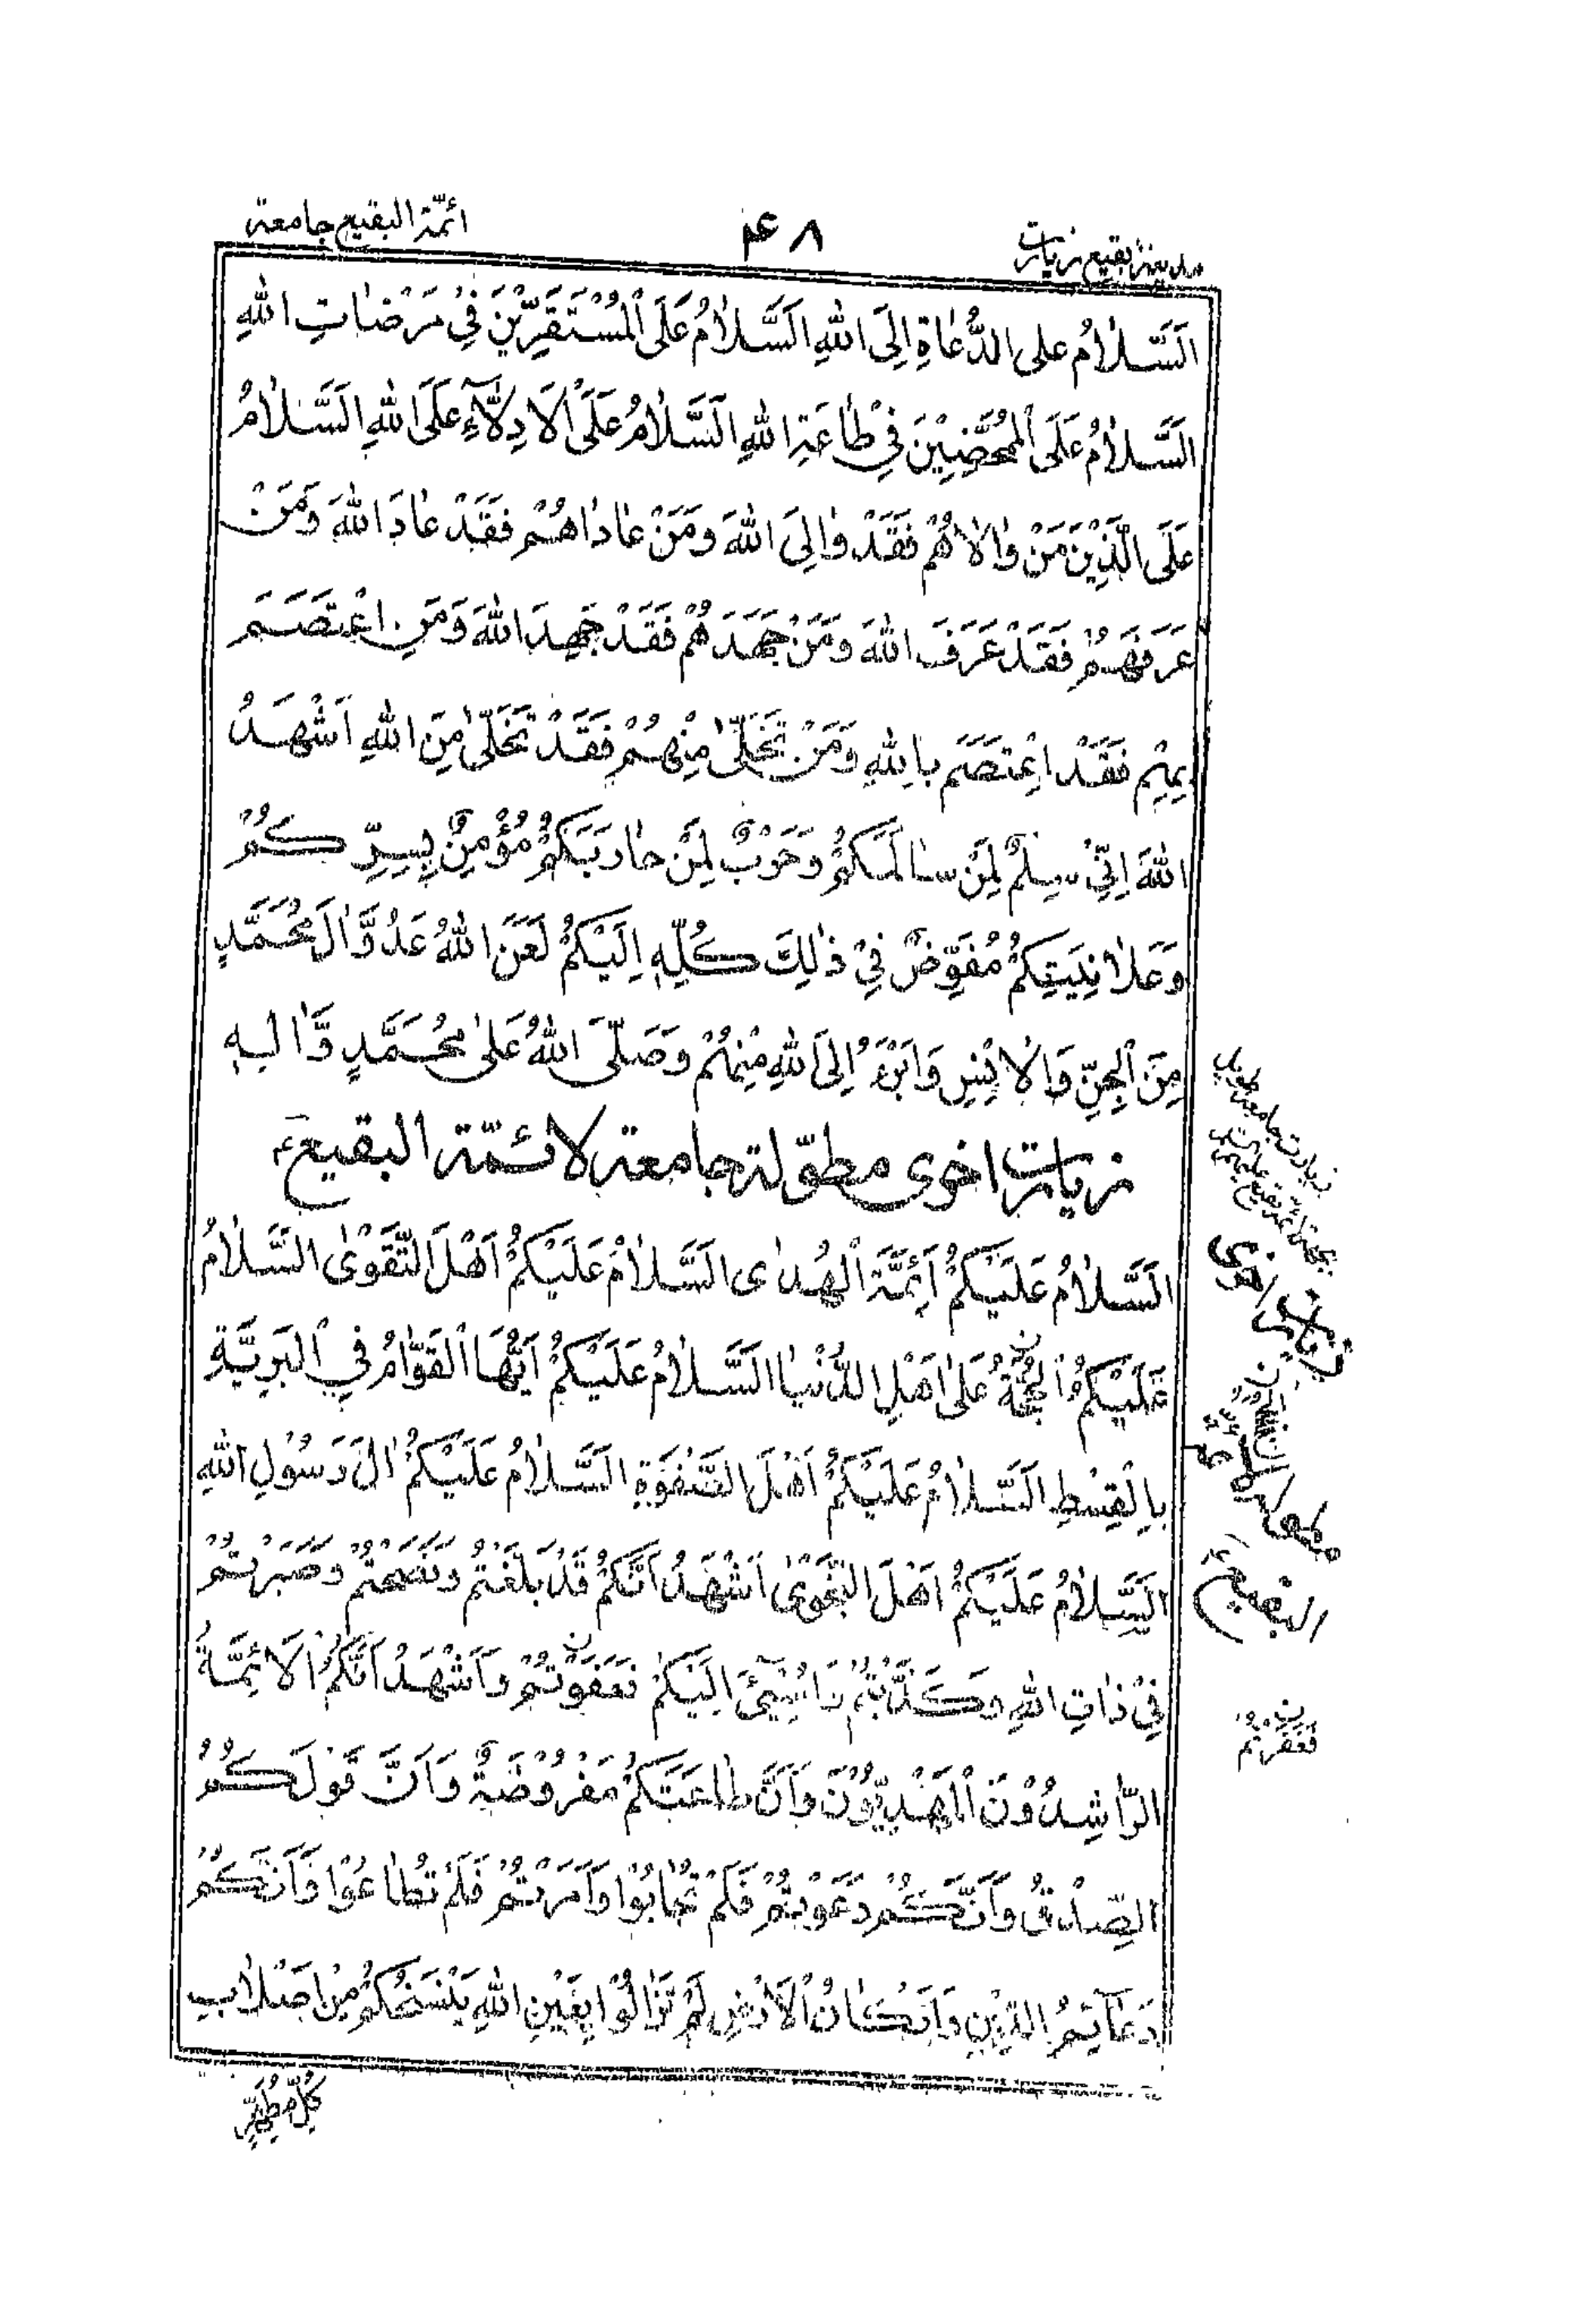 مدينة بقيع زيارت
۴۸
ائمّة البقيع جامعة
اَلسَّلاٰمُ على الدُّعٰاةِ اِلَى اللهِ اَلسَّلاٰمُ عَلَى الْمُسْتَقَرِّيْنَ فِيْ مَرْضٰاتِ اللهِ
اَلسَّلاٰمُ عَلَى الْمُمَحَّضِيْنَ فِيْ طٰاعَةِ اللهِ اَلسَّلاٰمُ عَلَى الْاَدِلَّآءِ عَلَى اللهِ اَلسَّلاٰمُ
عَلَى الَّذِيْنَ مَنْ وٰالاٰهُمْ فَقَدْ وٰالىَ اللهَ وَمَنْ عٰادٰاهُمْ فَقَدْ عٰادَ اللهَ وَمَنْ
عَرَفَهُمْ فَقَدْ عَرَفَ اللهَ وَمَنْ جَهَدَهُمْ فَقَدْ جَهِدَ اللهَ وَمَنِ اعْتَصَمَ
بِهِمْ فَقَدْ اِعْتَصَمَ بِاللهِ وَمَنْ تَخَلّىٰ مِنْهُمْ فَقَدْ تَخَلّىٰ مِنَ اللهِ اَشْهَدُ
اللهَ اِنِّيْ سِلْمٌ لِمَنْ سٰالَمَكُمْ وَحَرْبٌ لِمَنْ حٰارَبَكُمْ مُؤْمِنٌ بِسِرِّكُمْ
وَعَلاٰنِيَتِكُمْ مُفَوِّضٌ فِيْ ذٰلِكَ كُلِّهِ اِلَيْكُمْ لَعَنَ اللهُ عَدُوَّ اٰلَ مُحَمَّدٍ
مِنَ الْجِنِّ وَالْاِنْسِ وَاَبْرَءُ اِلىَ اللهِ مِنْهُمْ وَصَلّىَ اللهُ عَلىٰ مُحَمَّدٍ وَّاٰلِهِ
زيارت اخرى مطوّلة جامعة لائمّة البقيعؑ
اَلسَّلاٰمُ عَلَيْكُمْ اَئِمَّةَ الْهُدٰى اَلسَّلاٰمُ عَلَيْكُمْ اَهْلَ التَّقْوىٰ السَّلاٰمُ
عَلَيْكُمُ الْحُجَّةُ عَلىٰ اَهْلِ الدُّنْيٰا اَلسَّلاٰمُ عَلَيْكُمْ اَيُّهَا الْقَوّٰامُ فِي الْبَرِيَّةِ
بِالْقِسْطِ اَلسَّلاٰمُ عَلَيْكُمْ اَهْلَ الصَّفْوَةِ اَلسَّلاٰمُ عَلَيْكُمْ اٰلَ رَسُوْلِ اللهِ
اَلسَّلاٰمُ عَلَيْكُمْ اَهْلَ النَّجْوىٰ اَشْهَدُ اَنَّكُمْ قَدْ بَلَّغْتُمْ وَنَصَحْتُمْ وَصَبَرْتُمْ
فِيْ ذٰاتِ اللهِ وَكُذِّبْتُمْ وَاُسِيْئَ اِلَيْكُمْ فَعَفَوْتُمْ وَاَشْهَدُ اَنَّكُمُ الْاَئِمَّةُ
الرّٰاشِدُوْنَ الْمَهْدِيُّوْنَ وَاَنَّ طٰاعَتَكُمْ مَفْرُوْضَةٌ وَاَنَّ قَوْلَكُمُ
الصِّدْقُ وَاَنَّكُمْ دَعَوْتُمْ فَلَمْ تُجٰابُوْا وَاَمَرْتُمْ فَلَمْ تُطٰاعُوْا وَاَنَّكُمْ
دَعٰآئِمُ الدِّيْنِ وَاَرْكٰانُ الْاَرْضِ لَمْ تَزٰالُوْا بِعَيْنِ اللهِ يَنْسَخُكُمْ مِنْ اَصْلاٰبِ
كُلِّ مُطَهَّرٍ
زيارت جامعه طويل
زيارت اخرى
البقيعؑ
فَغَفَرْتُمْ